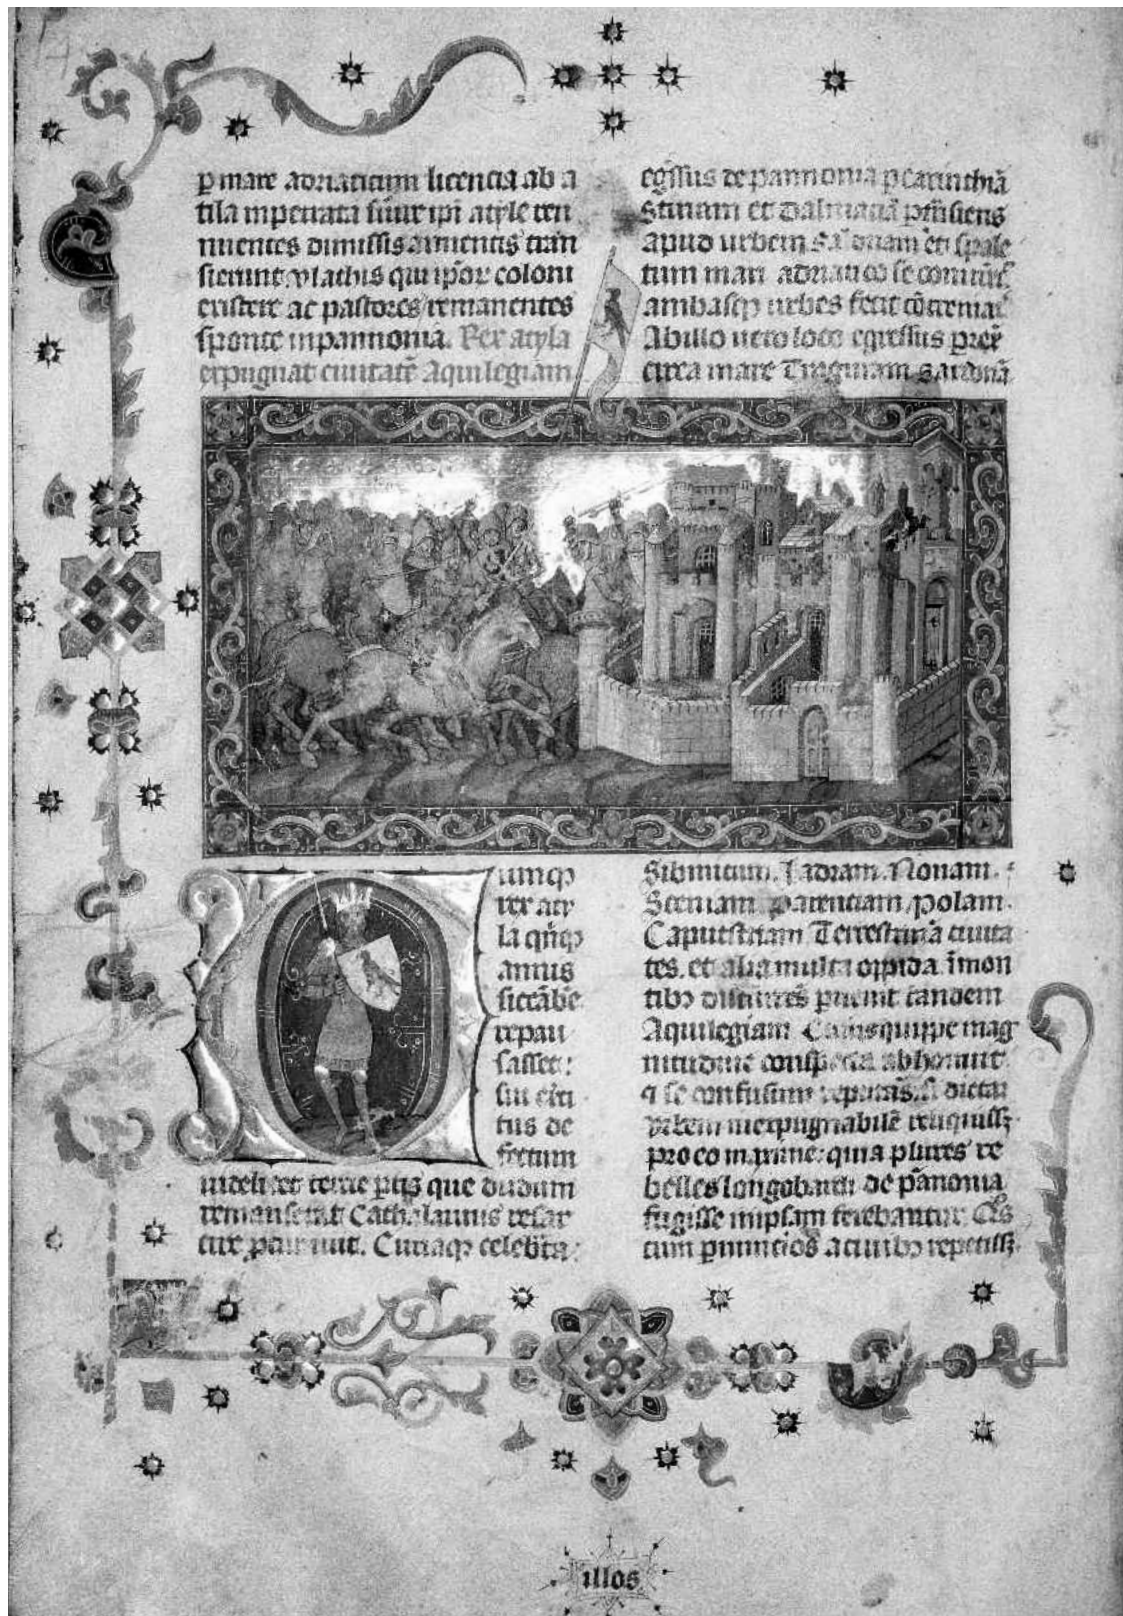 p mare adriaticum licencia ab a
tila inpetrata sunt ipi atyle ren
nuentes dimissis armentis tran
sierunt vlathis qui ipor coloni
existere ac pastores remanentes
sponte in pannonia. Rex atyla
expugnat ciuitate Aquilegiam
Cumq
rex aty
la qnq
annis
sicābe
repau
sasset:
sui
tus de
fectum
terre ptis que dudum
remanserat Cathalaunis resar
cire Curiaq celebta
egssus de pannonia p carinthia
Stiriam et Dalmacia
apud urbem et spale
tum mari adriatico se
ambasq urbes fecit
Ab illo uero loco egressus
circa mare Traguriam Sardonā
Sibinicum. Jadram. Nonam.
Sceniam parentiam polam.
Caput striam Terrestrinā ciuita
tes. et alia multa oppida ī mon
tibꝫ puenit tandem
Aquilegiam Cuius quippe mag
nitudine conspecta abhorruit
⁊ se confusum si dictā
vrbem inexpugnabilē reliquissꝫ
pro eo maxime: quia plures re
belles longobardi de pānonia
fugisse in ipsam ferebantur
cum p nuncios a ciuibꝫ repetissꝫ
illos